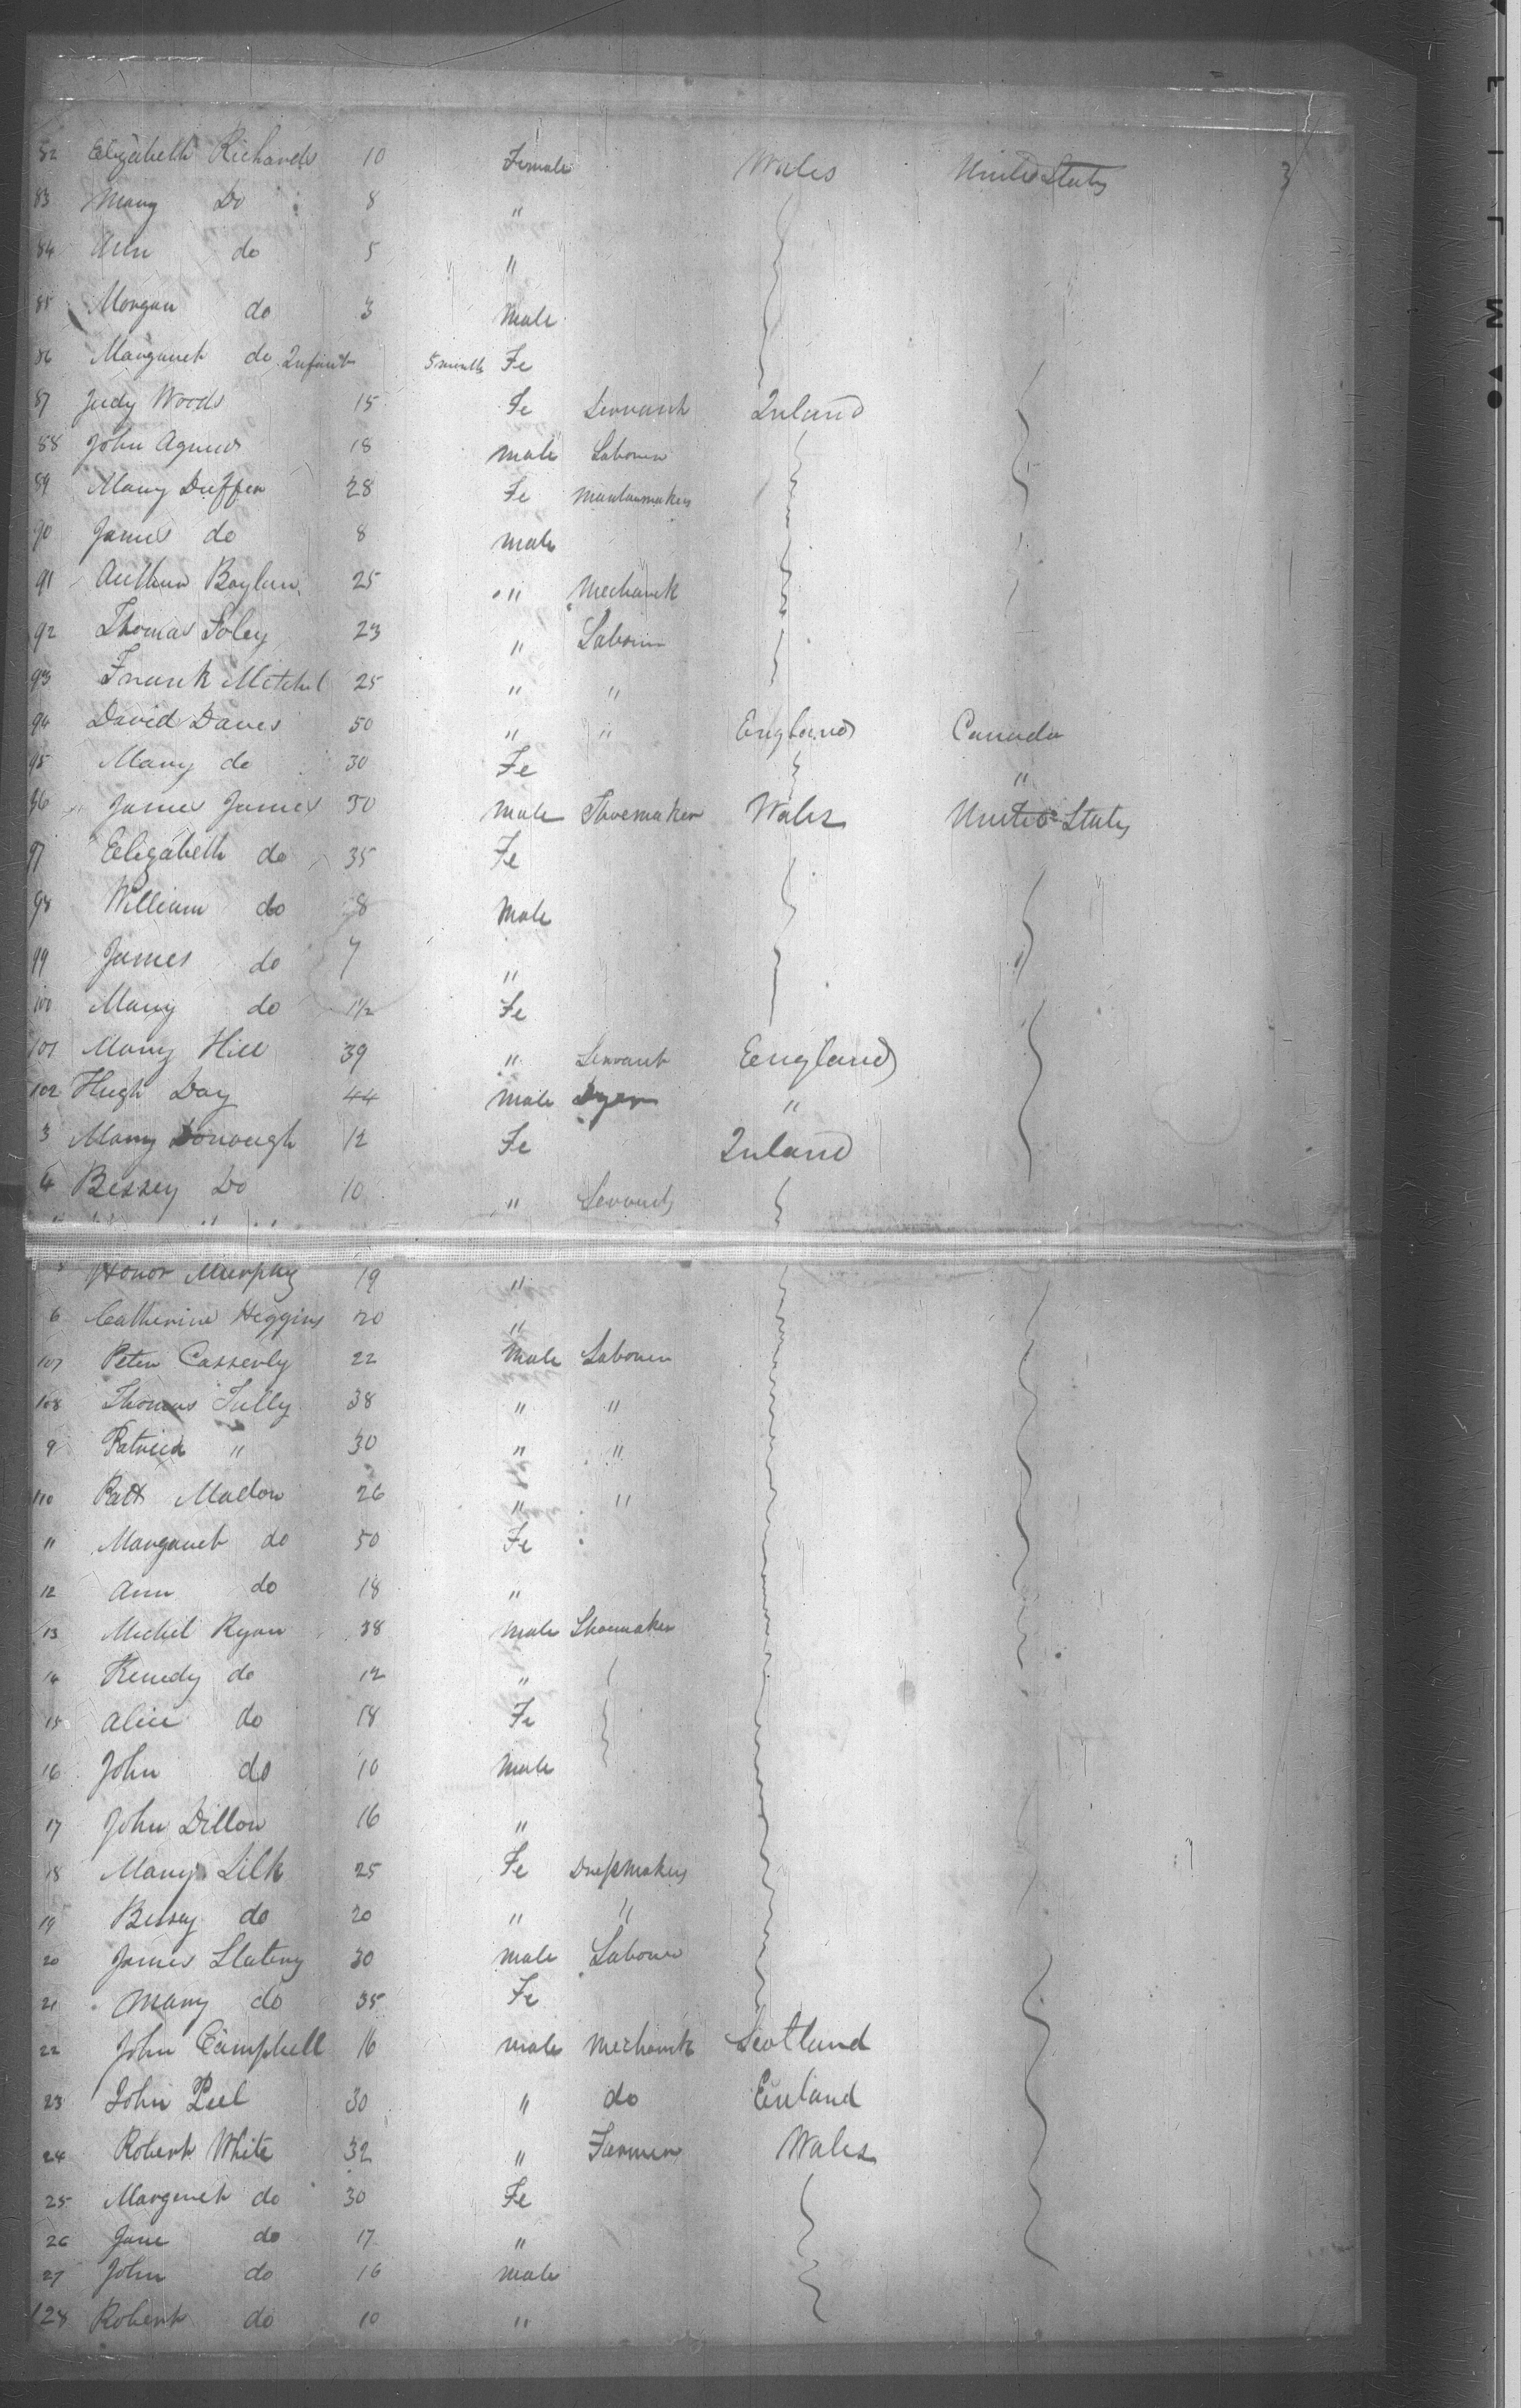 82 Elizabeth Richards 10 Female Wales United States 3
83 Mary Do 8 "
84 Ann do 5 "
85 Morgan do 3 Male
86 Margaret do Infant 5 months Fe
87 Judy Woods 15 Fe Servant Ireland
88 John Agnew 18 Male Labourer
89 Mary Duffen 28 Fe Mantuamaker
90 James do 8 Male
91 Arthur Boylan 25 " Mechanick
92 Thomas Foley 23 " Labourer
93 Frank Mitchel 25 " "
94 David Daves 50 " " England Canada
95 Mary do 30 Fe "
96 James James 30 Male Shoemaker Wales United States
97 Elizabeth do 35 Fe
98 William do 8 Male
99 James do 7 "
100 Mary do 1½ Fe
101 Mary Hill 39 " Servant England
102 Hugh Day 44 Male Dyer "
3 Mary Donough 12 Fe Ireland
4 Bessey Do 10 " Servant
5 Honor Murphy 19 "
6 Catherine Higgins 20 "
107 Peter Casserly 22 Male Labourer
108 Thomas Tully 38 " "
9 Patrick " 30 " "
110 Patt Madon 26 " "
11 Margaret do 50 Fe
12 Ann do 18 "
13 Michel Ryan 38 Male Shoemaker
14 Kenedy do 12 "
15 Alice do 18 Fe
16 John do 10 Male
17 John Dillon 16 "
18 Mary Lilk 25 Fe Dressmaker
19 Bessy do 20 " "
20 James Slateny 30 Male Labourer
21 Mary do 35 Fe
22 John Campbell 16 Male Mechanick Scotland
23 John Peel 30 " do Enland
24 Robert White 32 " Farmer Wales
25 Margeret do 30 Fe
26 Jane do 17 "
27 John do 16 Male
128 Robert do 10 "